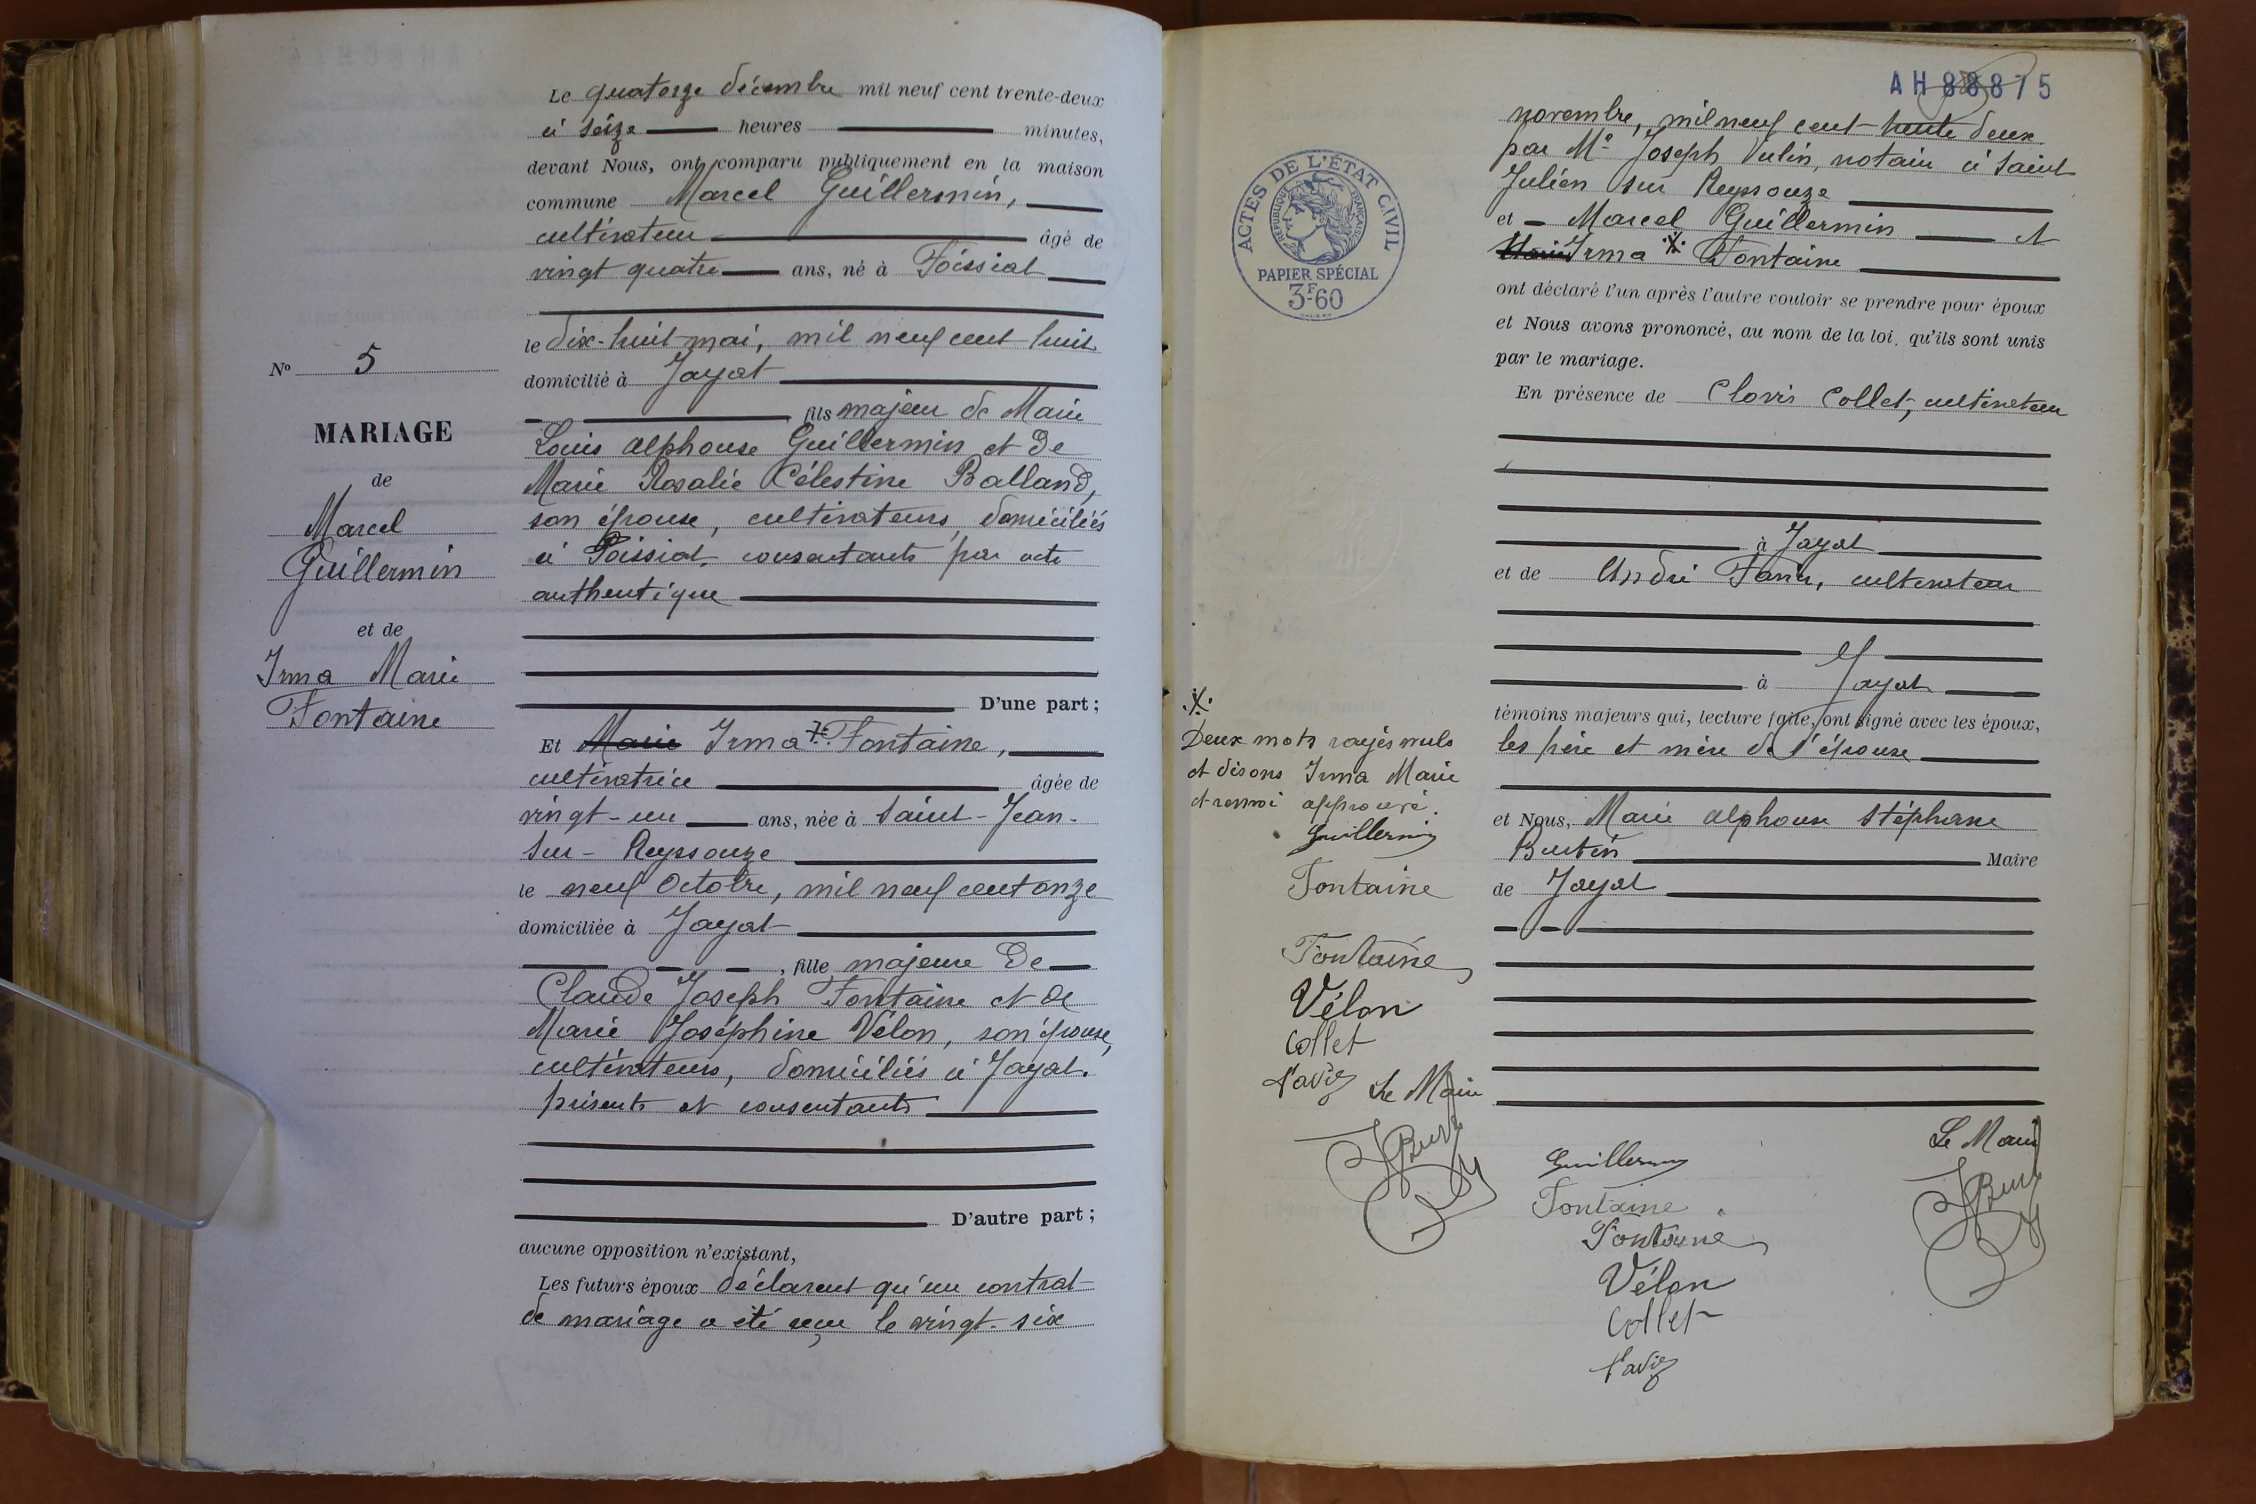 N° 5
MARIAGE
de
Marcel
Guillermin
et de
Irma Marie
Fontaine
Le quatorze décembre mil neuf cent trente-deux
à seize heures minutes,
devant Nous, ont comparu publiquement en la maison
commune Marcel Guillermin,
cultivateur âgé de
vingt quatre ans, né à Foissiat
le dix-huit mai, mil neuf cent huit
domicilié à Jayat
fils majeur de Marie
Louis Alphonse Guillermin et de
Marie Rosalie Célestine Balland,
son épouse, cultivateurs, domiciliés
à Foissiat, consentants par acte
authentique
D'une part ;
Et Marie Irma Fontaine,
cultivatrice âgée de
vingt-un ans, née à Saint-Jean-
sur-Reyssouze
le neuf Octobre, mil neuf cent onze
domiciliée à Jayat
, fille majeure de
Claude Joseph Fontaine et de
Marie Joséphine Vélon, son épouse,
cultivateurs, domiciliés à Jayat.
présents et consentants
D'autre part ;
aucune opposition n'existant,
Les futurs époux déclarent qu'un contrat
de mariage a été reçu le vingt-six
AH 88875
novembre, mil neuf cent trente deux
par Me Joseph Vulin, notaire à Saint
Julien sur Reyssouze
et Marcel Guillermin et
Marie Irma Fontaine
ont déclaré l'un après l'autre vouloir se prendre pour époux
et Nous avons prononcé, au nom de la loi, qu'ils sont unis
par le mariage.
En présence de Clovis Collet, cultivateur
à Jayat
et de André Favier, cultivateur
à Jayat
témoins majeurs qui, lecture faite, ont signé avec les époux,
les père et mère de l'épouse
et Nous, Marie Alphonse Stéphane
Burtin Maire
de Jayat
ACTES DE L'ÉTAT CIVIL
RÉPUBLIQUE FRANÇAISE
PAPIER SPÉCIAL
3F60
Deux mots rayés nuls
et disons Irma Marie
et renvoi approuvé.
Guillermin
Fontaine
Fontaine
Vélon
Collet
Favier
Le Maire
Guillermin
Fontaine
Fontaine
Vélon
Collet
Favier
Le Maire